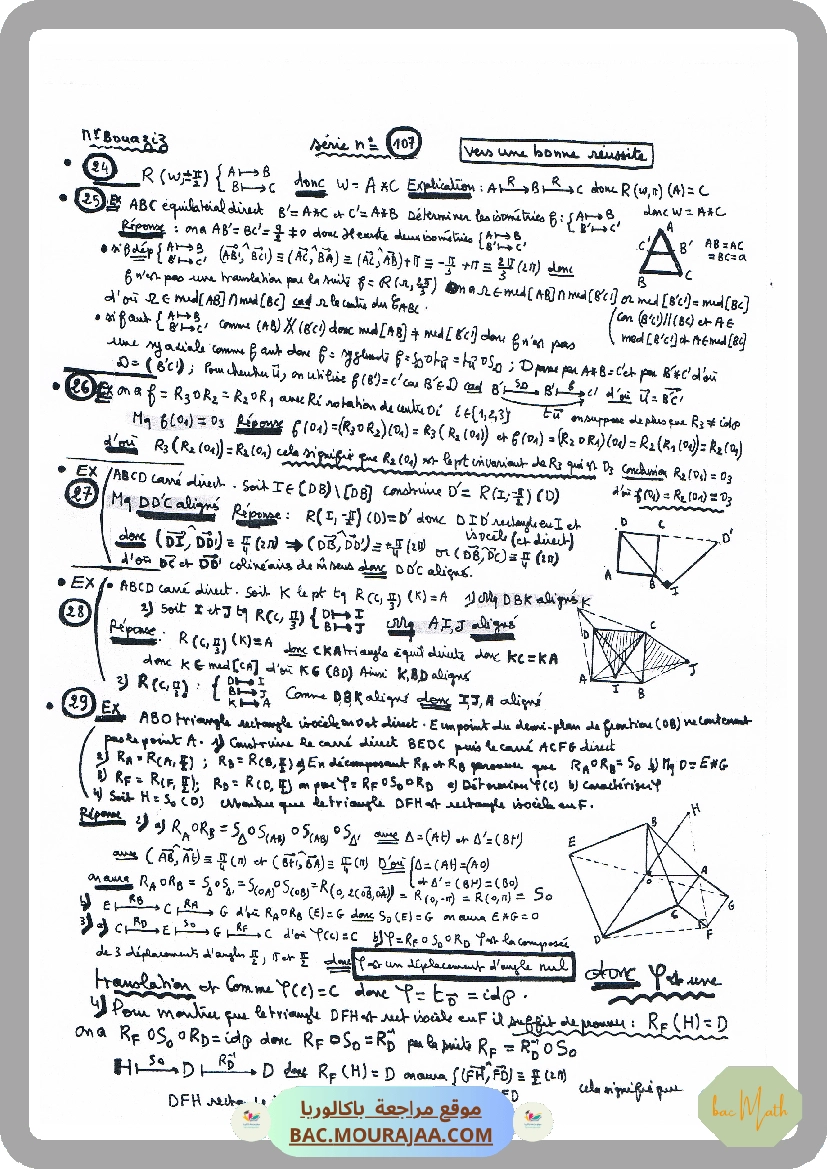 Mr Bouaziz série n° 107 Vers une bonne réussite
24 R(w, ±π/2) { A ↦ B B ↦ C donc W = A*C Explication : A ↦R B ↦R C donc R(w,π)(A) = C
donc W = A*C
25 Ex ABC équilatéral direct B' = A*C et C' = A*B Déterminer les isométries f : { A ↦ B B' ↦ C'
Réponse : on a AB' = BC' = a/2 ≠ 0 donc il existe deux isométries { A ↦ B B' ↦ C'
AB = AC = BC = a
• si f dép { A ↦ B B' ↦ C' (AB', BC') ≡ (AC, BA) ≡ (AC, AB) + π ≡ -π/3 + π ≡ 2π/3 (2π) donc
f n'est pas une translation par la suite f = R(Ω, 2π/3) on a Ω ∈ med[AB] ∩ med[B'C'] or med[B'C'] = med[BC]
d'où Ω ∈ med[AB] ∩ med[BC] cad Ω le centre du ABC. (car (B'C') // (BC) et A ∈
• si f anti { A ↦ B B' ↦ C' comme (AB) (B'C') donc med[AB] ≠ med[B'C'] donc f n'est pas med[B'C'] et A ∈ med[BC]
une sy axiale comme f ant donc f = sy glissante f = S_D o t_u = t_u o S_D ; D passe par A*B = C' et par B'*C' d'où
D = (B'C') ; Pour chercher u, on utilise f(B') = C' car B' ∈ D cad B' ↦ B' ↦ C' d'où u = B'C'
26 Ex on a f = R3 o R2 = R2 o R1 avec Ri rotation de centre Oi i ∈ {1,2,3} on suppose de plus que R3 ≠ idp
Mq f(O1) = O3 Réponse f(O1) = (R3 o R2)(O1) = R3(R2(O1)) et f(O1) = (R2 o R1)(O1) = R2(R1(O1)) = R2(O1)
d'où R3(R2(O1)) = R2(O1) cela signifie que R2(O1) est le pt invariant de R3 qui est O3 Conclusion R2(O1) = O3
d'où f(O1) = R2(O1) = O3
• EX 27 ABCD carré direct. Soit I ∈ [DB) \ [DB] construire D' = R(I, -π/2)(D)
Mq DD'C aligné Réponse : R(I, -π/2)(D) = D' donc DID' rectangle en I et
isocèle (et direct)
donc (DI, DD') ≡ π/4 (2π) ⇒ (DB, DD') ≡ π/4 (2π) or (DB, DC) ≡ π/4 (2π)
d'où DC et DD' colinéaires de m̂ sens donc DD'C aligné.
• EX 28 • ABCD carré direct. Soit K le pt tq R(C, π/3)(K) = A 1) Mq DBK aligné
2) Soit I et J tq R(C, π/3) { D ↦ I B ↦ J Mq A I, J aligné
Réponse : R(C, π/3)(K) = A donc CKA triangle équil directe donc KC = KA
donc K ∈ med[CA] d'où K ∈ (BD) Ainsi K, B, D aligné
2) R(C, π/3) : { D ↦ I B ↦ J K ↦ A Comme DBK aligné donc I, J, A aligné
• 29 Ex ABO triangle rectangle isocèle en O et direct. E un point du demi-plan de frontière (OB) ne contenant
pas le point A. 1) Construire le carré direct BEDC puis le carré ACFG direct
2) R_A = R(A, π/2) ; R_B = R(B, π/2) a) En décomposant R_A et R_B prouver que R_A o R_B = S_O b) Mq O = E*G
3) R_F = R(F, π/2) ; R_D = R(D, π/2) on pose φ = R_F o S_O o R_D a) Déterminer φ(C) b) Caractériser φ
4) Soit H = S_O(D) Montrer que le triangle DFH est rectangle isocèle en F.
Réponse 2) a) R_A o R_B = S_Δ o S_(AB) o S_(AB) o S_Δ' avec Δ = (At) et Δ' = (Bt')
avec (AB, At) ≡ π/4 (π) et (Bt', BA) ≡ π/4 (π) D'où { Δ = (At) = (AO) et Δ' = (Bt') = (BO)
on aura R_A o R_B = S_Δ o S_Δ' = S_(OA) o S_(OB) = R(O, 2(OB, OA)) = R(O, -π) = R(O, π) = S_O
b) E ↦R_B C ↦R_A G d'où R_A o R_B(E) = G donc S_O(E) = G on aura E*G = O
3) a) C ↦R_D E ↦S_O G ↦R_F C d'où φ(C) = C b) φ = R_F o S_O o R_D φ est la composée
de 3 déplacements d'angles π/2, π et π/2 donc φ est un déplacement d'angle nul donc φ est une
translation et comme φ(C) = C donc φ = t_0 = idp.
4) Pour montrer que le triangle DFH est rect isocèle en F il suffit de prouver : R_F(H) = D
on a R_F o S_O o R_D = idp donc R_F o S_O = R_D⁻¹ par la suite R_F = R_D⁻¹ o S_O
H ↦S_O D ↦R_D⁻¹ D donc R_F(H) = D on aura { (FH, FD) ≡ π/2 (2π) cela signifie que
DFH
A C' B' B C
D C D' A B I
K D C J A I B
H B E O A C G D F
موقع مراجعة باكالوريا
BAC.MOURAJAA.COM
bac Math